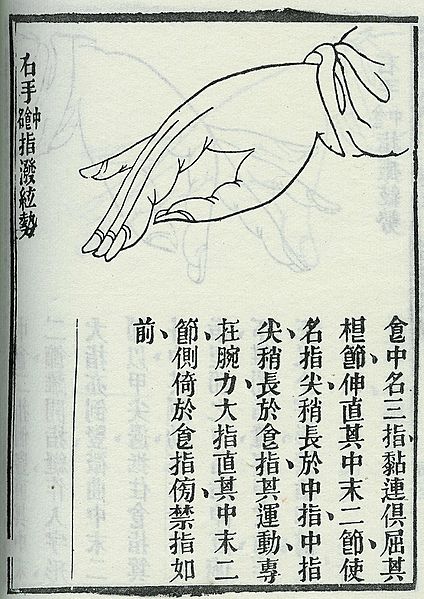 右手食中名指潑絃勢
食中名三指黏連俱屈其
根節伸直其中末二節使
名指尖稍長於中指中指
尖稍長於食指其運動專
在腕力大指直其中末二
節側倚於食指傍禁指如
前